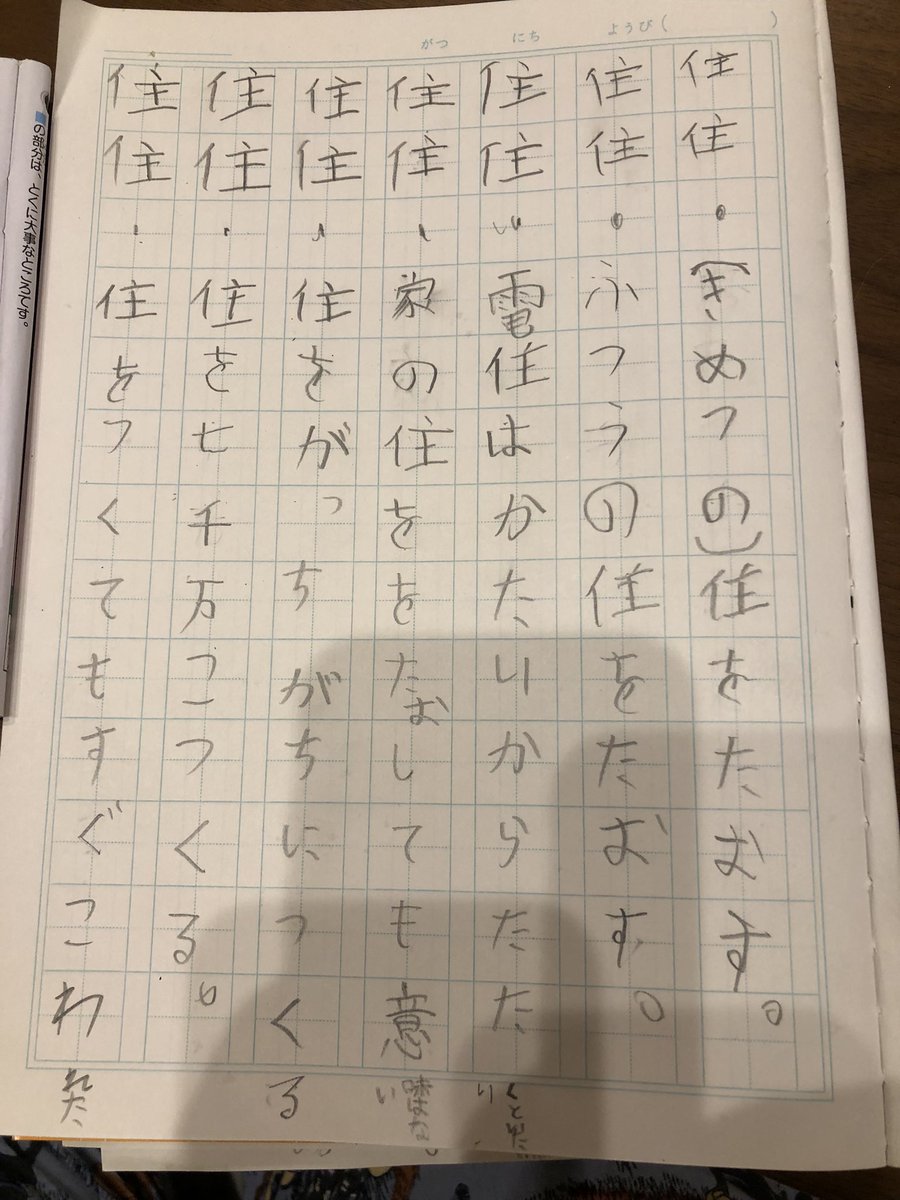 がつ にち ようび( )
住住。(きめつの)住をたおす。
住住。ふつうの住をたおす。
住住、電住はかたいからたたくと
住住、家の住ををたおしても意味
住住、住をがっちがちにつくる
住住、住を七千万こつくる。
住住、住をつくてもすぐこわれた
の部分は、とくに大事なところです。